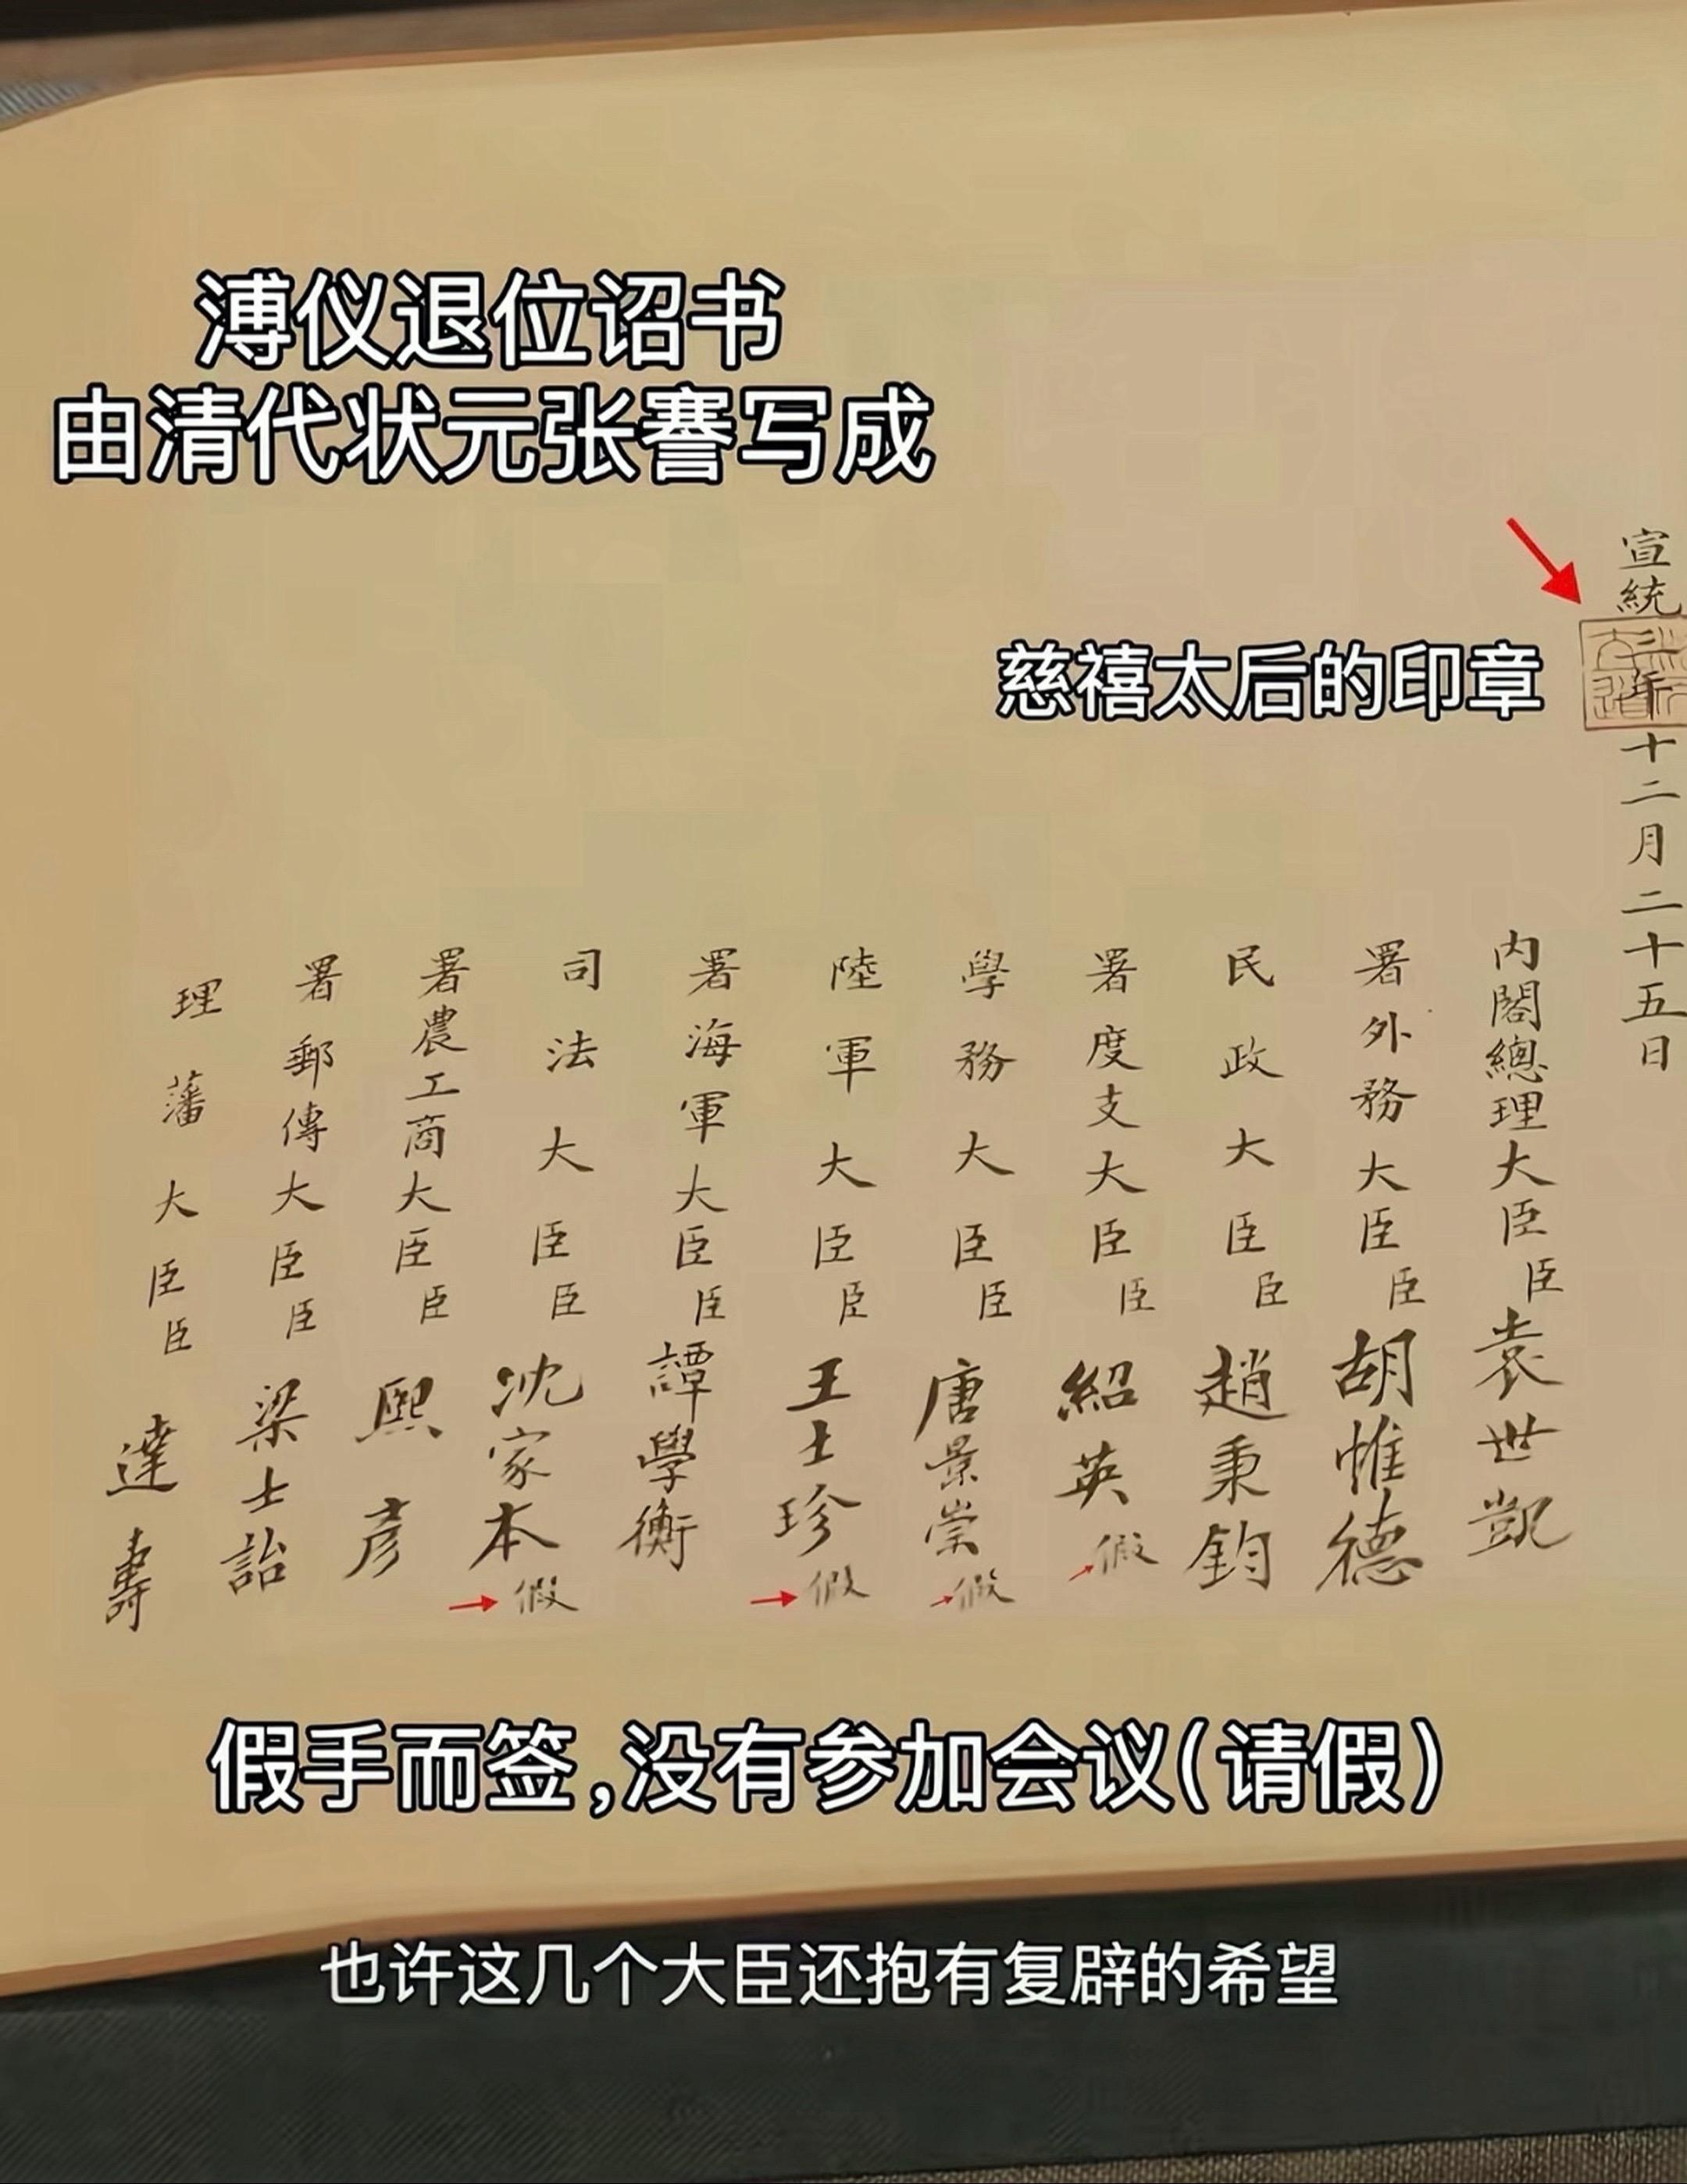 溥仪退位诏书
由清代状元张謇写成
慈禧太后的印章
宣統
年十二月二十五日
内閣總理大臣臣袁世凱
署外務大臣臣胡惟德
民政大臣臣趙秉鈞
署度支大臣臣紹英假
學務大臣臣唐景崇假
陸軍大臣臣王士珍假
署海軍大臣臣譚學衡
司法大臣臣沈家本假
署農工商大臣臣熙彦
署郵傳大臣臣梁士詒
理藩大臣臣達壽
假手而签,没有参加会议(请假)
也许这几个大臣还抱有复辟的希望